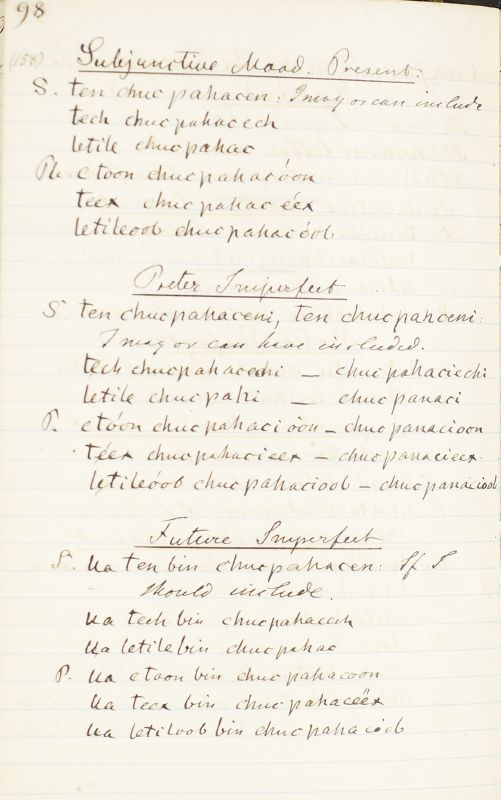 98
(158) Subjunctive Mood. Present.
S. ten chucpahacen: I may or can include
tech chucpahacech
letile chucpahac
Pl. c toon chucpahacóon
teex chucpahacéex
letileoob chucpahacóob
Preter Imperfect
S. ten chucpahaceni, ten chucpahceni:
I may or can have included.
tech chucpahacechi – chucpahaciechi
letile chucpahi – chucpanaci
P. c tóon chucpahacioon – chucpanacioon
téex chucpahacieex – chucpanacieex
letileóob chucpahacioob – chucpanacioob
Future Imperfect
S. Ua ten bin chucpahacen: If I
should include.
Ua tech bin chucpahacech
Ua letile bin chucpahac
P. Ua c toon bin chucpahacoon
Ua teex bin chucpahacéex
Ua letiloob bin chucpahacoób